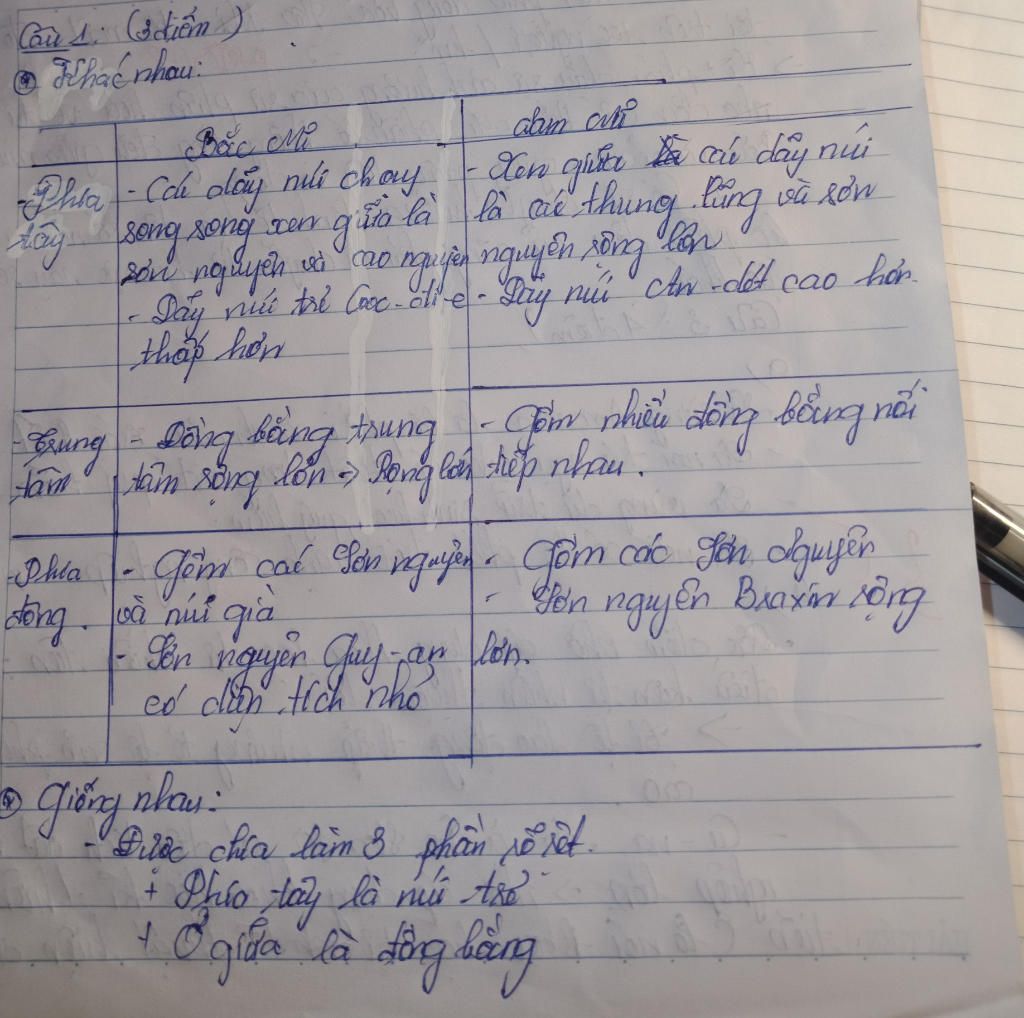 Câu 1: (3 điểm)
⊛ Khác nhau:
Bắc Mĩ
Nam Mĩ
- Phía
tây
- Các dãy núi chạy
song song xen giữa là
sơn nguyên và cao nguyên
- Dãy núi trẻ Cooc-đi-e
thấp hơn
- Xen giữa các dãy núi
là các thung lũng và sơn
nguyên rộng lớn
- Dãy núi An-đét cao hơn.
- Trung
tâm
- Đồng bằng trung
tâm rộng lớn => Rộng lớn
- Gồm nhiều đồng bằng nối
tiếp nhau.
- Phía
đông.
- Gồm các sơn nguyên
và núi già
- Sơn nguyên Guy-an
có diện tích nhỏ
- Gồm các Sơn Nguyên
- Sơn nguyên Braxin rộng
lớn.
⊛ Giống nhau:
- Được chia làm 3 phần rõ rệt.
+ Phía tây là núi trẻ
+ Ở giữa là đồng bằng